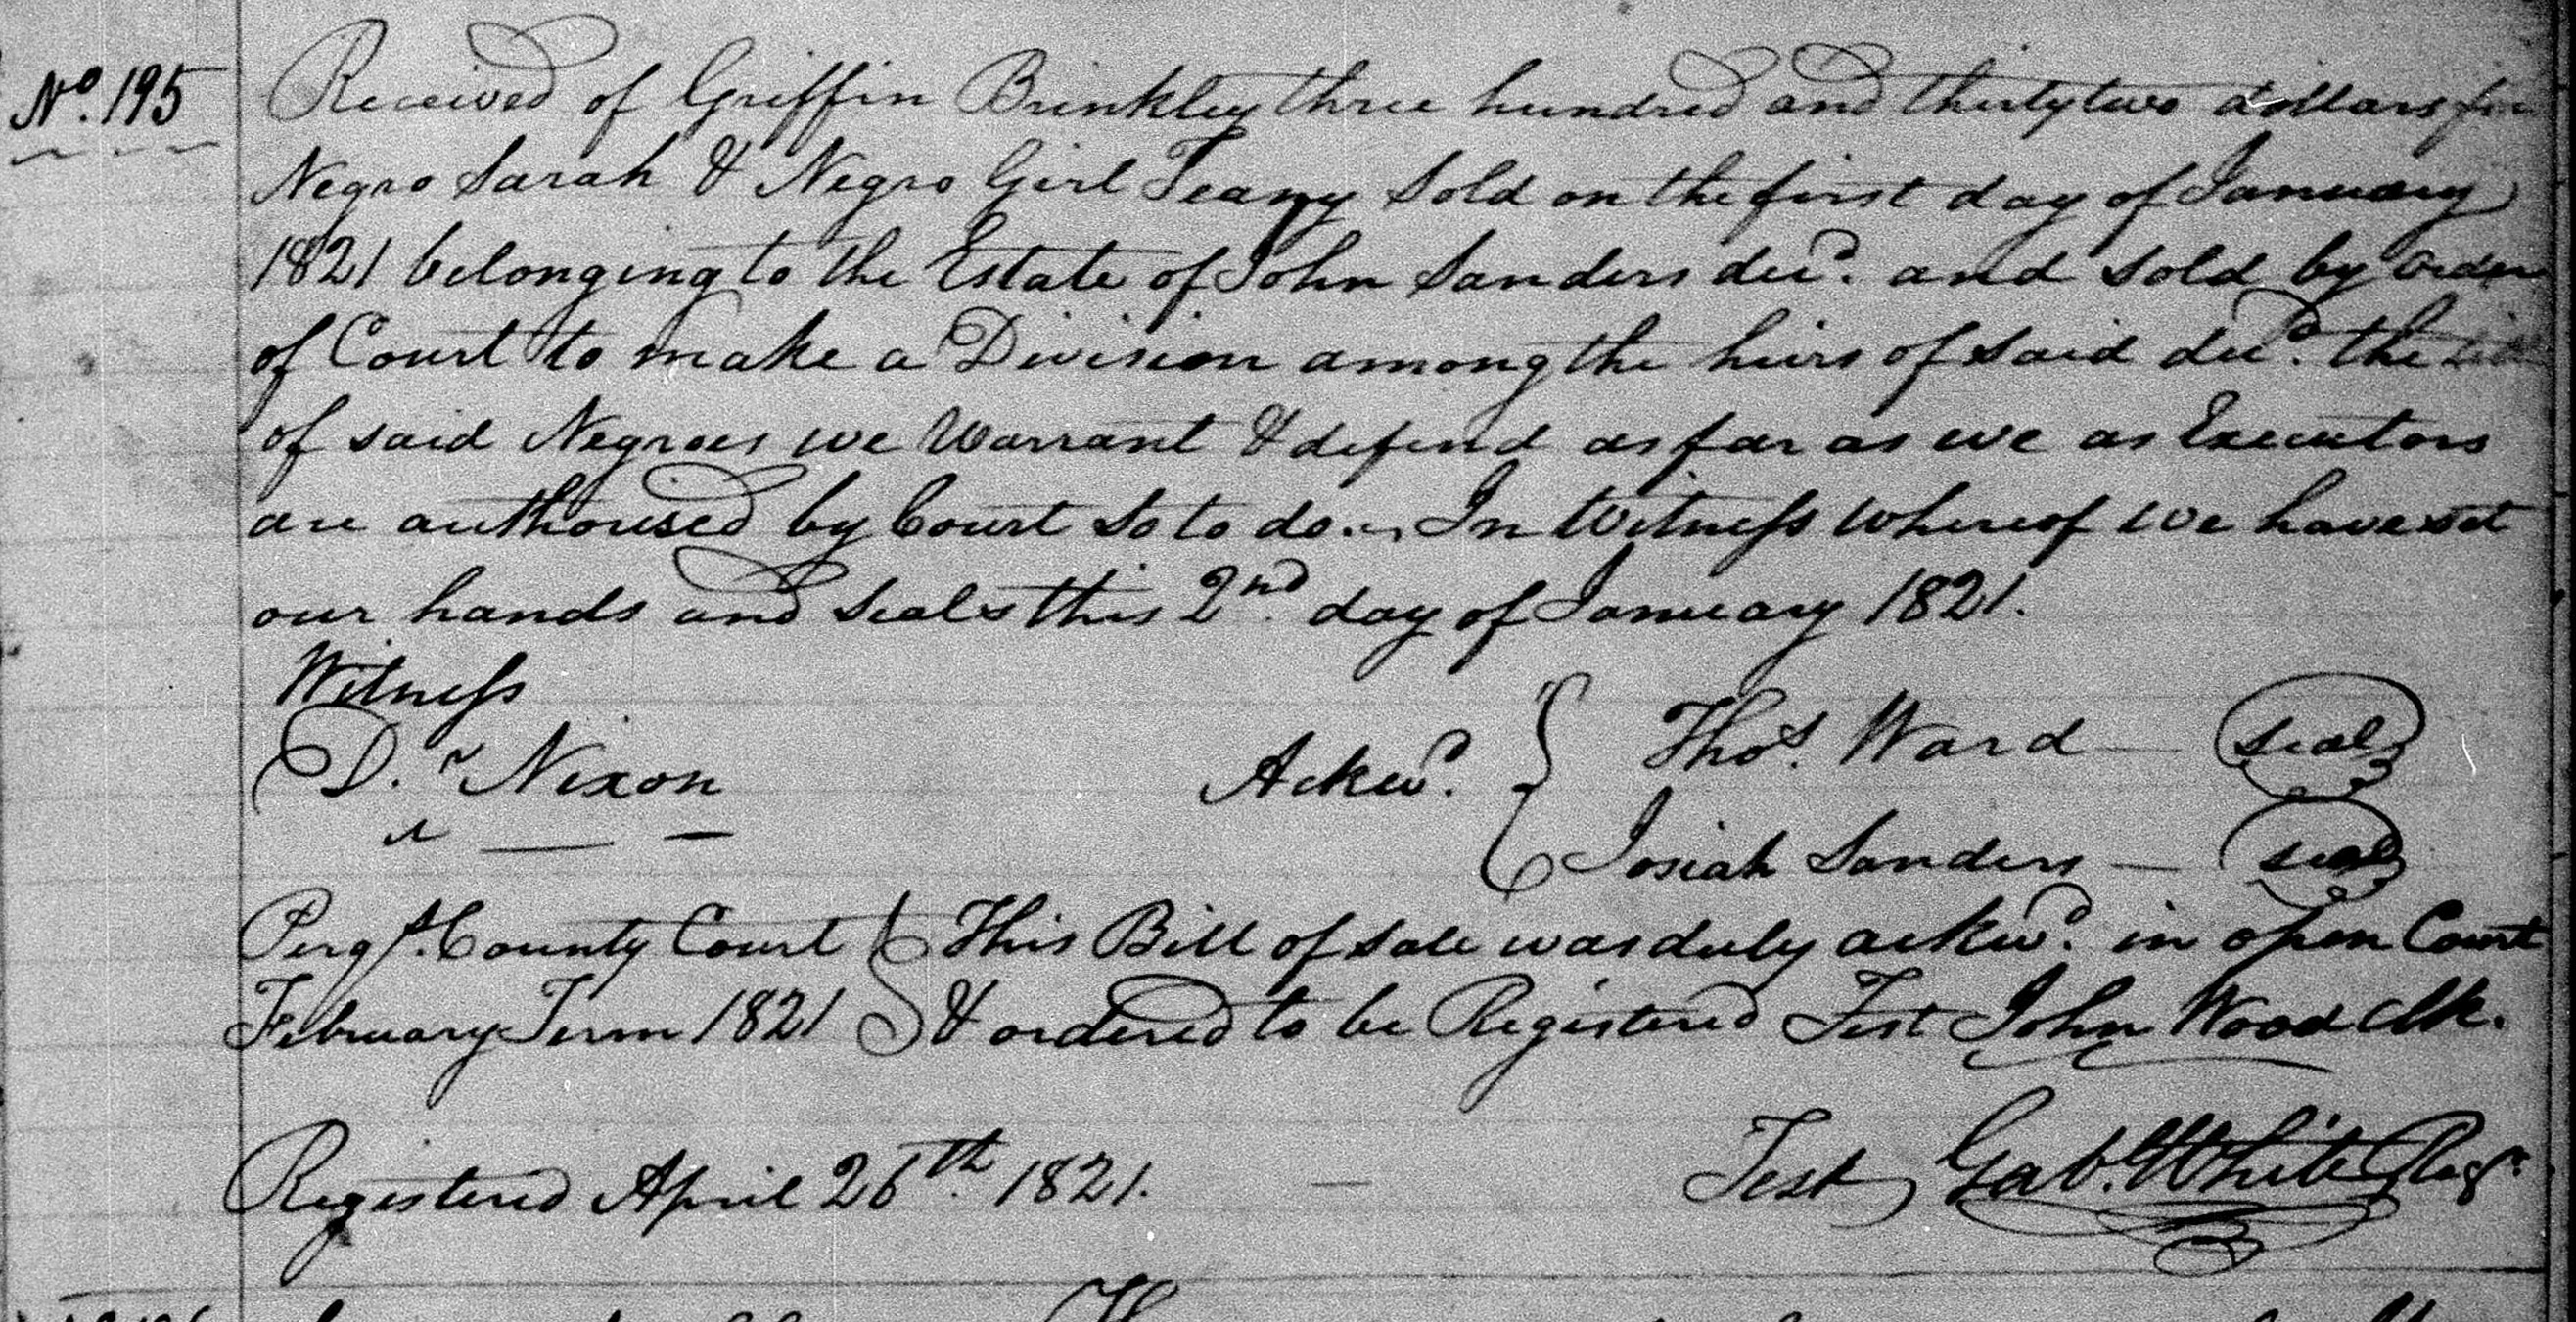 No. 195
Received of Griffin Brinkley three hundred and thirty two dollars for
Negro Sarah & Negro Girl Teany Sold on the first day of January
1821 belonging to the Estate of John Sanders decd. and sold by order
of Court to make a Division among the heirs of said decd. the
of said Negroes we Warrant & defend as far as we as Executors
are authorised by Court So to do. In Witness whereof we have set
our hands and seals this 2nd day of January 1821.
Witness
D. Nixon
Ackwd.
Thos. Ward seal
Josiah Sanders seal
Perqs. County Court This Bill of sale was duly ackwd. in open Court
February Term 1821 & ordered to be Registered Test John Wood Clk.
Registered April 26th. 1821. Test Gab. White Regr.